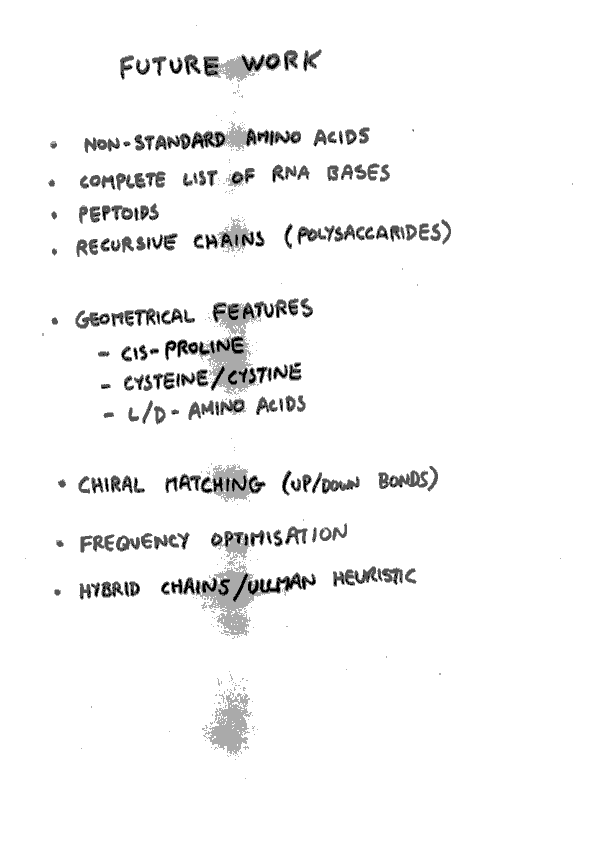 FUTURE WORK
• NON-STANDARD AMINO ACIDS
• COMPLETE LIST OF RNA BASES
• PEPTOIDS
• RECURSIVE CHAINS (POLYSACCARIDES)
• GEOMETRICAL FEATURES
– CIS-PROLINE
– CYSTEINE/CYSTINE
– L/D-AMINO ACIDS
• CHIRAL MATCHING (UP/DOWN BONDS)
• FREQUENCY OPTIMISATION
• HYBRID CHAINS/ULLMAN HEURISTIC